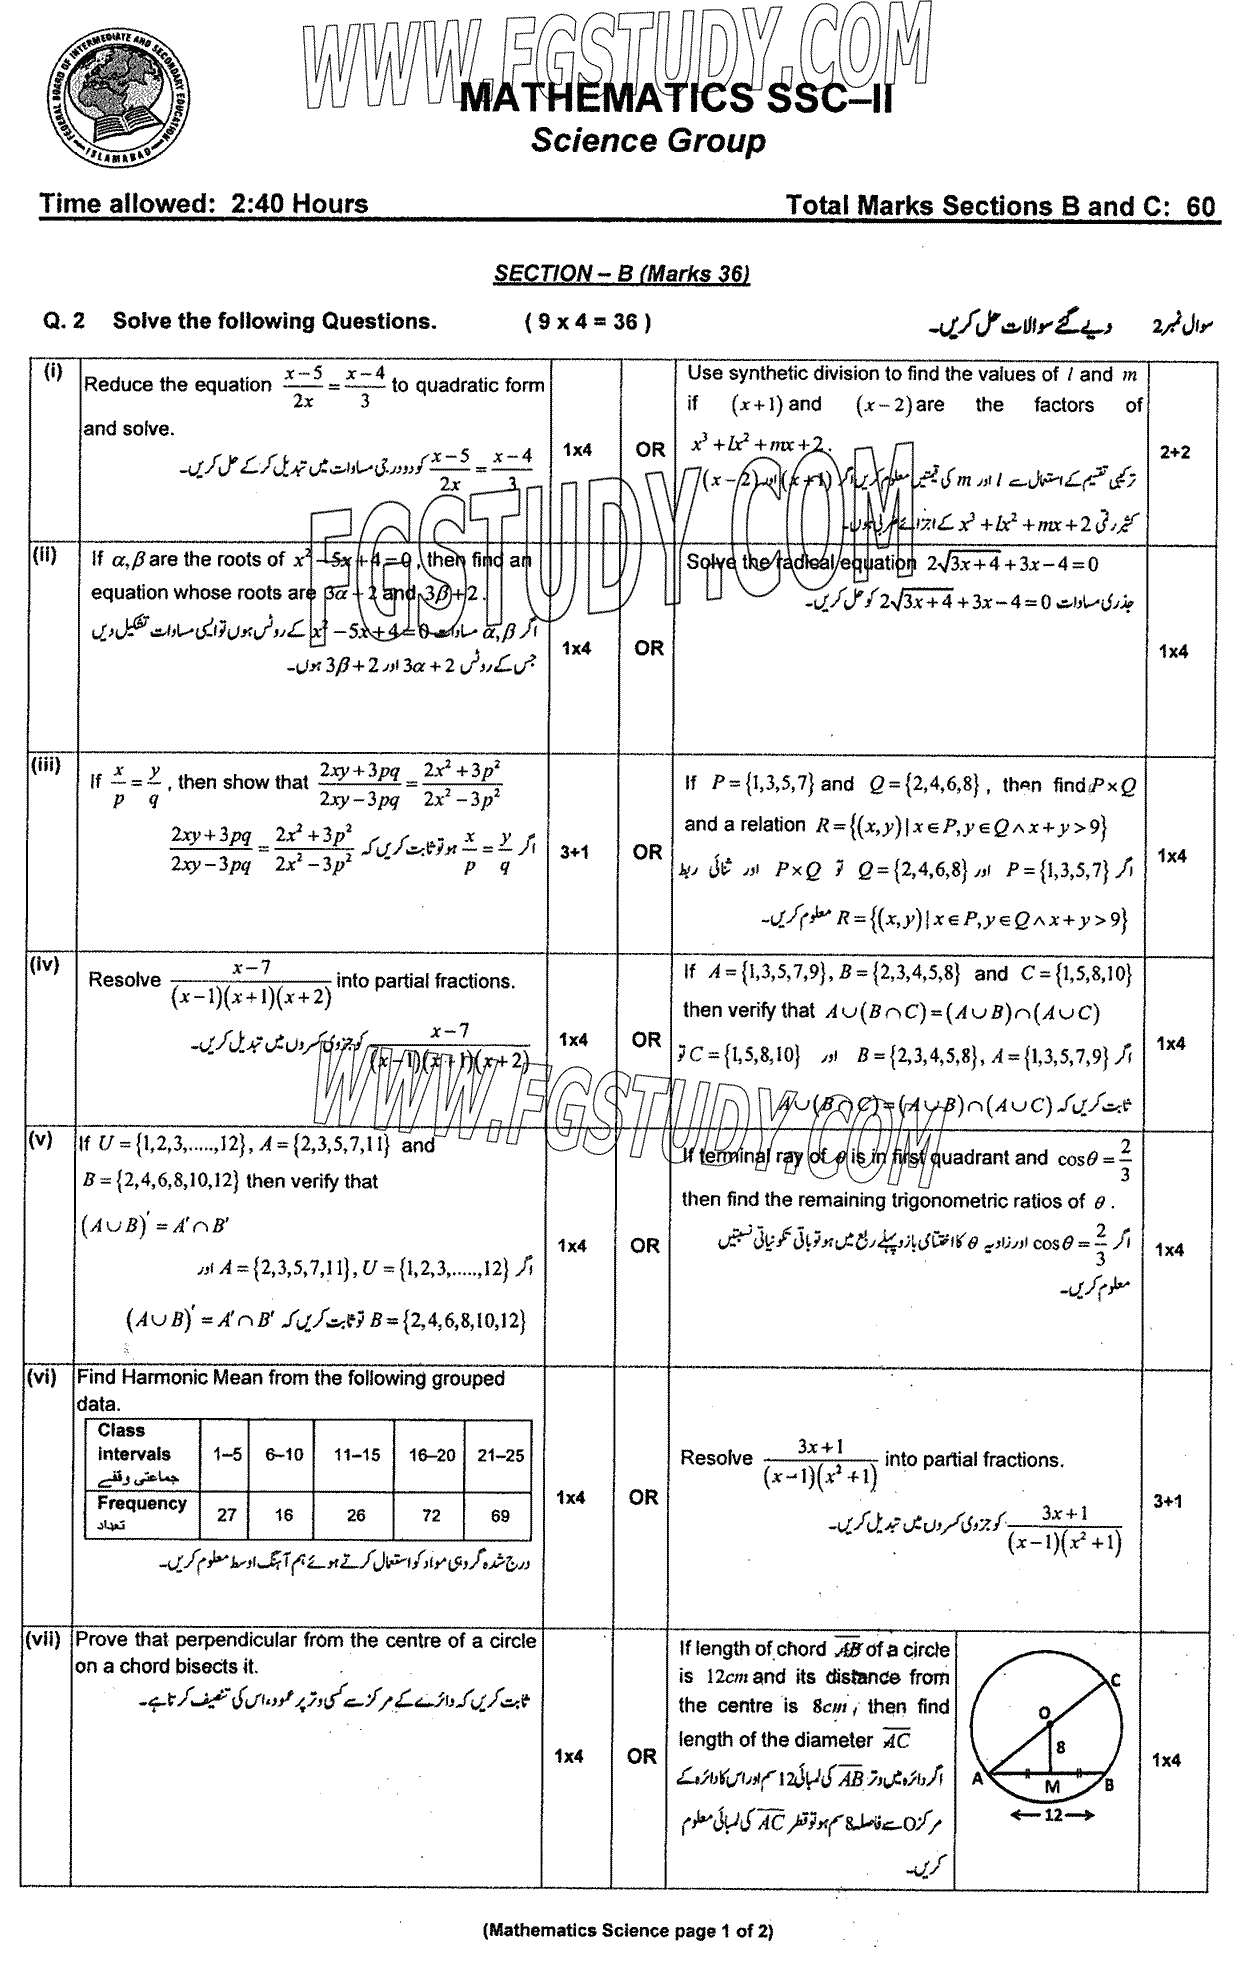 WWW.FGSTUDY.COM
FEDERAL BOARD OF INTERMEDIATE AND SECONDARY EDUCATION
ISLAMABAD
MATHEMATICS SSC–II
Science Group
Time allowed: 2:40 Hours
Total Marks Sections B and C: 60
SECTION – B (Marks 36)
Q. 2 Solve the following Questions. ( 9 x 4 = 36 )
سوال نمبر 2 دیے گئے سوالات حل کریں۔
(i)
Reduce the equation (x−5)/2x = (x−4)/3 to quadratic form
and solve.
(x−5)/2x = (x−4)/3 کو دو درجی مساوات میں تبدیل کر کے حل کریں۔
1x4
OR
Use synthetic division to find the values of l and m
if (x+1) and (x−2) are the factors of
x³ + lx² + mx + 2 .
ترکیبی تقسیم کے استعمال سے l اور m کی قیمتیں معلوم کریں اگر (x+1) اور (x−2)
کثیر رقمی x³ + lx² + mx + 2 کے اجزائے ضربی ہوں۔
2+2
(ii)
If α, β are the roots of x² − 5x + 4 = 0 , then find an
equation whose roots are 3α + 2 and 3β + 2 .
اگر α, β مساوات x² − 5x + 4 = 0 کے روٹس ہوں تو ایسی مساوات تشکیل دیں
جس کے روٹس 3α + 2 اور 3β + 2 ہوں۔
1x4
OR
Solve the radical equation 2√(3x+4) + 3x − 4 = 0
جذری مساوات 2√(3x+4) + 3x − 4 = 0 کو حل کریں۔
1x4
FGSTUDY.COM
(iii)
If x/p = y/q , then show that (2xy+3pq)/(2xy−3pq) = (2x²+3p²)/(2x²−3p²)
اگر x/p = y/q ہو تو ثابت کریں کہ (2xy+3pq)/(2xy−3pq) = (2x²+3p²)/(2x²−3p²)
3+1
OR
If P = {1,3,5,7} and Q = {2,4,6,8} , then find P×Q
and a relation R = {(x,y)|x∈P, y∈Q ∧ x+y > 9}
اگر P = {1,3,5,7} اور Q = {2,4,6,8} تو P×Q اور ثنائی ربط
R = {(x,y)|x∈P, y∈Q ∧ x+y > 9} معلوم کریں۔
1x4
(iv)
Resolve (x−7)/((x−1)(x+1)(x+2)) into partial fractions.
(x−7)/((x−1)(x+1)(x+2)) کو جزوی کسروں میں تبدیل کریں۔
1x4
OR
If A = {1,3,5,7,9}, B = {2,3,4,5,8} and C = {1,5,8,10}
then verify that A∪(B∩C) = (A∪B)∩(A∪C)
اگر A = {1,3,5,7,9}, B = {2,3,4,5,8} اور C = {1,5,8,10} تو
ثابت کریں کہ A∪(B∩C) = (A∪B)∩(A∪C)
1x4
WWW.FGSTUDY.COM
(v)
If U = {1,2,3,.....,12}, A = {2,3,5,7,11} and
B = {2,4,6,8,10,12} then verify that
(A∪B)′ = A′∩B′
اگر U = {1,2,3,.....,12}, A = {2,3,5,7,11} اور
B = {2,4,6,8,10,12} تو ثابت کریں کہ (A∪B)′ = A′∩B′
1x4
OR
If terminal ray of θ is in first quadrant and cosθ = 2/3
then find the remaining trigonometric ratios of θ .
اگر cosθ = 2/3 اور زاویہ θ کا اختتامی بازو پہلے ربع میں ہو تو باقی تکونیاتی نسبتیں
معلوم کریں۔
1x4
(vi)
Find Harmonic Mean from the following grouped
data.
Class intervals جماعتی وقفے 1–5 6–10 11–15 16–20 21–25
Frequency تعداد 27 16 26 72 69
درج شدہ گروہی مواد کو استعمال کرتے ہوئے ہم آہنگ اوسط معلوم کریں۔
1x4
OR
Resolve (3x+1)/((x−1)(x²+1)) into partial fractions.
(3x+1)/((x−1)(x²+1)) کو جزوی کسروں میں تبدیل کریں۔
3+1
(vii)
Prove that perpendicular from the centre of a circle
on a chord bisects it.
ثابت کریں کہ دائرے کے مرکز سے کسی وتر پر عمود، اس کی تنصیف کرتا ہے۔
1x4
OR
If length of chord A̅B̅ of a circle
is 12cm and its distance from
the centre is 8cm , then find
length of the diameter A̅C̅
اگر دائرہ میں وتر A̅B̅ کی لمبائی 12 سم اور اس کا دائرہ کے
مرکز O سے فاصلہ 8 سم ہو تو قطر A̅C̅ کی لمبائی معلوم
کریں۔
C
O
8
A
M
B
12
1x4
(Mathematics Science page 1 of 2)